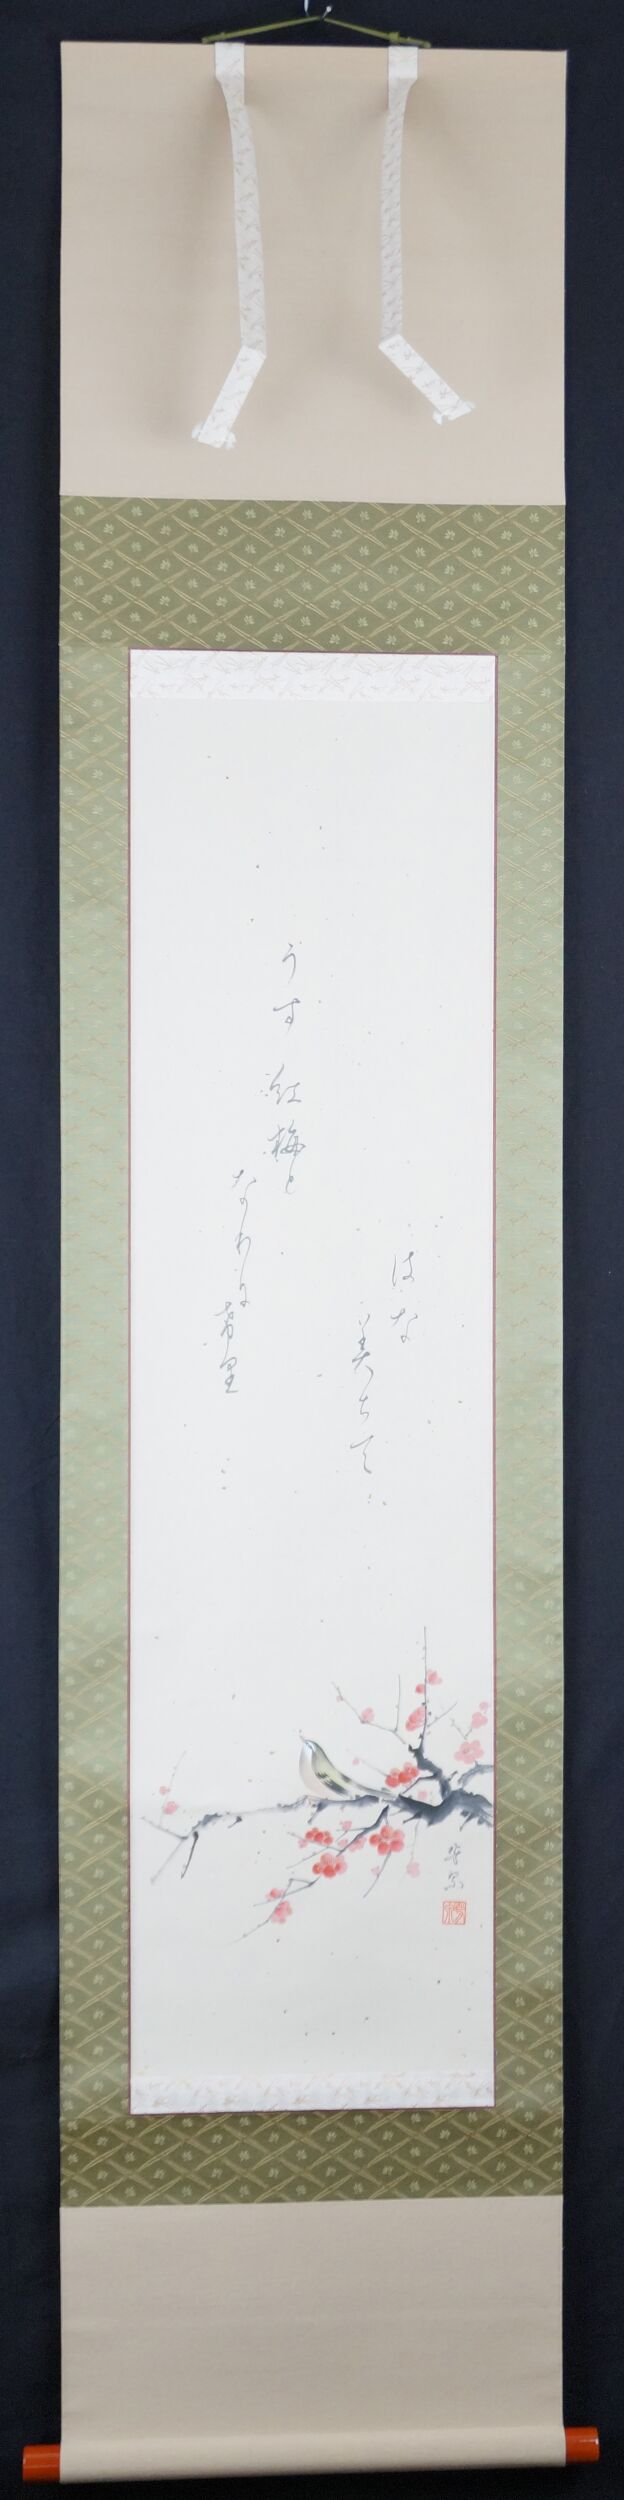 はな
美ちて
うす紅梅と
なりに希里